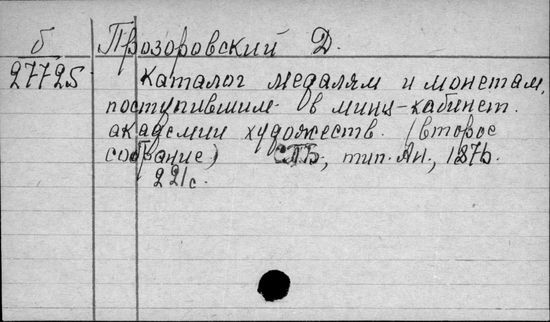 б Прозоровский Д.
27725 Каталог медалям и монетам,
поступившим в минц-кабинет.
академии художеств. (второе
собрание) СПБ, тип. Ан., 1876.
221с.